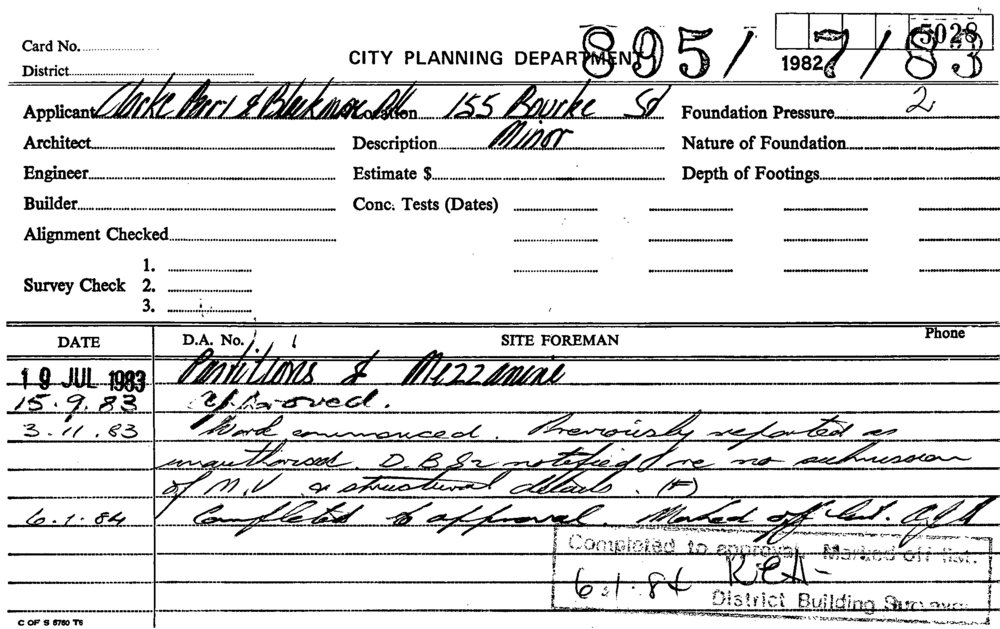 5028
Card No.
CITY PLANNING DEPARTMENT 895/7/83
1982
District
Applicant Clarke Parr & Blakemore Location 155 Bourke St Foundation Pressure 2
Architect Description Minor Nature of Foundation
Engineer Estimate $ Depth of Footings
Builder Conc. Tests (Dates)
Alignment Checked
1.
Survey Check 2.
3.
DATE D.A. No. SITE FOREMAN Phone
19 JUL 1983 Partitions & Mezzanine
15.9.83 Approved.
3.11.83 Work commenced. Previously reported as
unauthorised. D.B.S. notified re no submission
of M.V. & structural details.
6.1.84 Completed to approval. Marked off list.
Completed to approval. Marked off list.
6.1.84
District Building Surveyor
C OF S 5760 T6